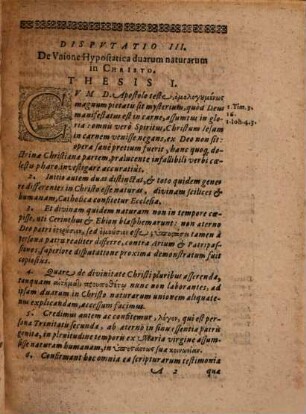 DISPVTATIO III.
De Vnione Hypostatica duarum naturarum
in CHRISTO.
THESIS I.
CVM D. Apostolo teste ὁμολογουμένως
magnum pietatis sit mysterium, quod Deus
manifestatus est in carne, assumtus in glo-
ria: omnis verò Spiritus, Christum Iesum
in carnem venisse, negans, ex Deo non sit:
opera sanè pretium fuerit, hanc quoq; do-
ctrinæ Christianæ partem, prælucente infallibili verbi cæ-
lestis pharo investigare accuratius.
1. Tim. 3.
16.
1. Ioh. 4. 3.
2. Initio autem duas distinctas, & toto quidem gene-
re differentes in Christo esse naturas, divinam scilicet &
humanam, Catholica confitetur Ecclesia.
3. Et divinam quidem naturam non in tempore cœ-
pisse, uti Cerinthus & Ebion blasphemarunt: non æterno
Deo patri sed tamen à
persona patris realiter differre, contra Arium & Patripas-
sianos, superiore disputatione proxima demonstratum fuit
copiosius.
4. Quare de divinitate Christi pluribus asserenda,
tanquam nunc non laborantes, ad
ipsam duarum in Christo naturarum unionem aliquate-
nus explicandam, accessum facimus.
5. Credimus autem ac confitemur, λόγον, qui est per-
sona Trinitatis secunda, ab æterno in sinu essentiæ patris
genitus, in plenitudine temporis ex Maria virgine assump-
sisse naturam humanam, in
6. Confirmant hoc omnia ea scripturarum testimonia
A 2 quæ